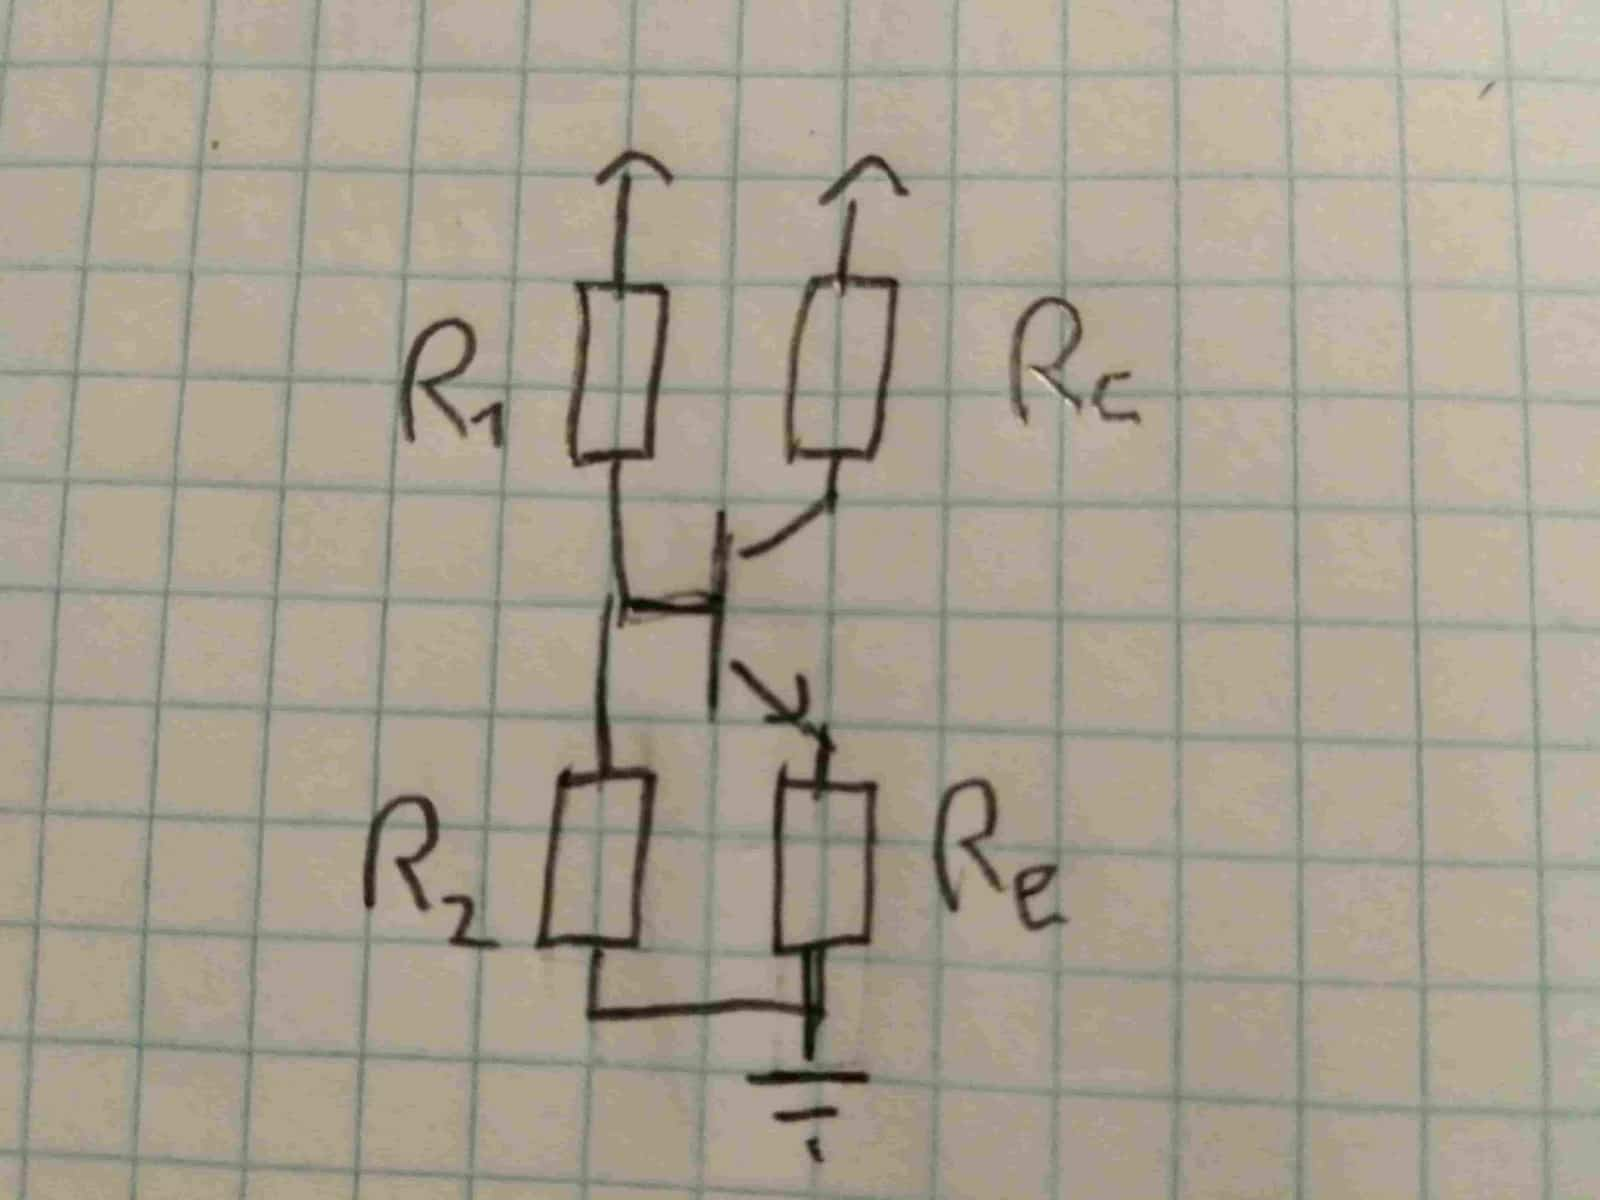 R1
Rc
R2
Re